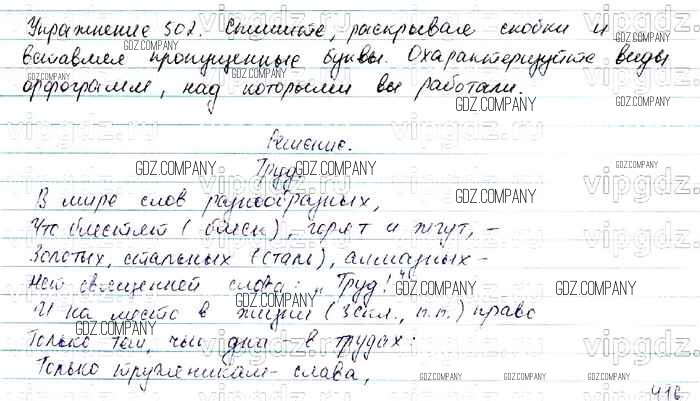 Упражнение 502. Спишите, раскрывая скобки и
вставляя пропущенные буквы. Охарактеризуйте виды
орфограмм, над которыми вы работали.
Решение.
Труд.
В мире слов разнообразных,
Что блестят (блеск), горят и жгут, –
Золотых, стальных (сталь), алмазных –
Нет священней слова: „Труд!“
И на место в жизни (3 скл., п.п.) право
Только тем, чьи дни – в трудах:
Только труженикам – слава,
416
GDZ.COMPANY
vipgdz.ru